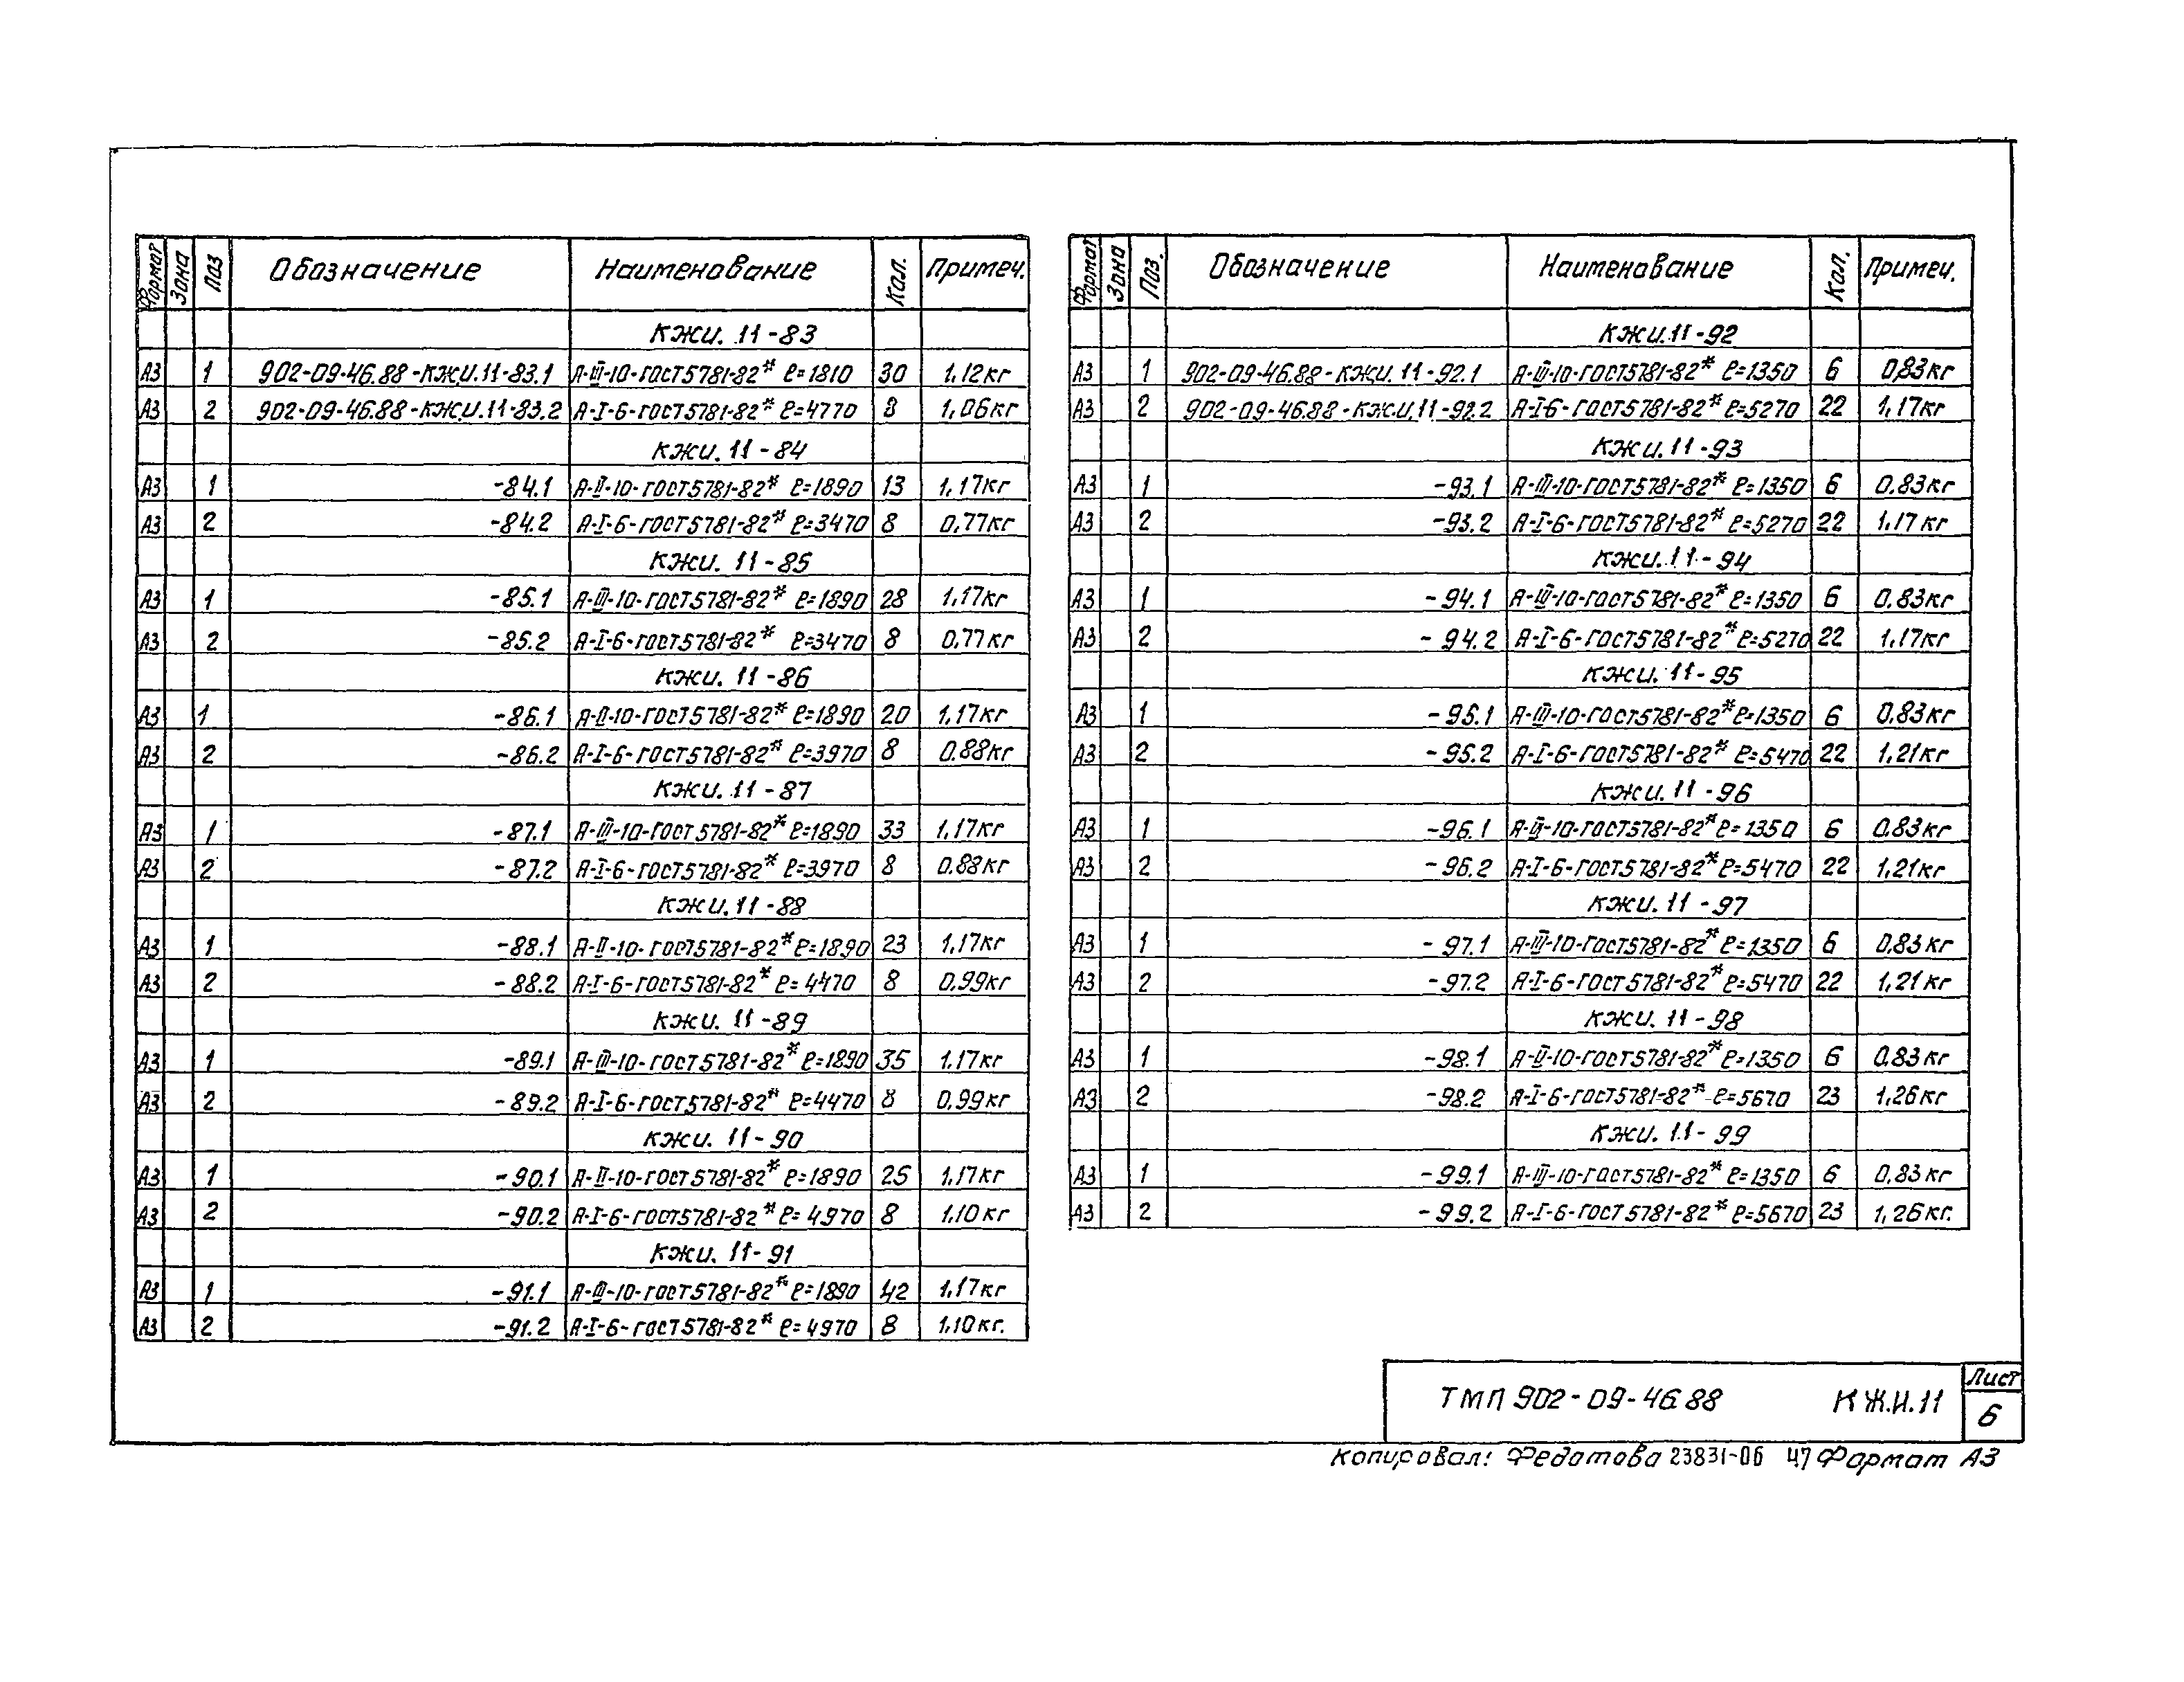 Формат Зона Поз Обозначение Наименование Кол. Примеч.
КЖИ. 11-83
А3 1 902-09-46.88-КЖИ.11-83.1 А-III-10-ГОСТ5781-82* ℓ=1810 30 1,12кг
А3 2 902-09-46.88-КЖИ.11-83.2 А-I-6-ГОСТ5781-82* ℓ=4770 8 1,06кг
КЖИ. 11-84
А3 1 -84.1 А-II-10-ГОСТ5781-82* ℓ=1890 13 1,17кг
А3 2 -84.2 А-I-6-ГОСТ5781-82* ℓ=3470 8 0,77кг
КЖИ. 11-85
А3 1 -85.1 А-III-10-ГОСТ5781-82* ℓ=1890 28 1,17кг
А3 2 -85.2 А-I-6-ГОСТ5781-82* ℓ=3470 8 0,77кг
КЖИ. 11-86
А3 1 -86.1 А-II-10-ГОСТ5781-82* ℓ=1890 20 1,17кг
А3 2 -86.2 А-I-6-ГОСТ5781-82* ℓ=3970 8 0.88кг
КЖИ. 11-87
А3 1 -87.1 А-III-10-ГОСТ5781-82* ℓ=1890 33 1,17кг
А3 2 -87.2 А-I-6-ГОСТ5781-82* ℓ=3970 8 0.88кг
КЖИ. 11-88
А3 1 -88.1 А-II-10-ГОСТ5781-82* ℓ=1890 23 1,17кг
А3 2 -88.2 А-I-6-ГОСТ5781-82* ℓ=4470 8 0,99кг
КЖИ. 11-89
А3 1 -89.1 А-III-10-ГОСТ5781-82* ℓ=1890 35 1.17кг
А3 2 -89.2 А-I-6-ГОСТ5781-82* ℓ=4470 8 0,99кг
КЖИ. 11-90
А3 1 -90.1 А-II-10-ГОСТ5781-82* ℓ=1890 25 1,17кг
А3 2 -90.2 А-I-6-ГОСТ5781-82* ℓ=4970 8 1.10кг
КЖИ. 11-91
А3 1 -91.1 А-III-10-ГОСТ5781-82* ℓ=1890 42 1,17кг
А3 2 -91.2 А-I-6-ГОСТ5781-82* ℓ=4970 8 1,10кг.
Формат Зона Поз. Обозначение Наименование Кол. Примеч.
КЖИ.11-92
А3 1 902-09-46.88-КЖИ.11-92.1 А-III-10-ГОСТ5781-82* ℓ=1350 6 0,83кг
А3 2 902-09-46.88-КЖИ.11-92.2 А-I-6-ГОСТ5781-82* ℓ=5270 22 1,17кг
КЖИ.11-93
А3 1 -93.1 А-III-10-ГОСТ5781-82* ℓ=1350 6 0.83кг
А3 2 -93.2 А-I-6-ГОСТ5781-82* ℓ=5270 22 1,17кг
КЖИ.11-94
А3 1 -94.1 А-III-10-ГОСТ5781-82* ℓ=1350 6 0.83кг
А3 2 -94.2 А-I-6-ГОСТ5781-82* ℓ=5270 22 1,17кг
КЖИ. 11-95
А3 1 -95.1 А-III-10-ГОСТ5781-82* ℓ=1350 6 0,83кг
А3 2 -95.2 А-I-6-ГОСТ5781-82* ℓ=5470 22 1,21кг
КЖИ. 11-96
А3 1 -96.1 А-III-10-ГОСТ5781-82* ℓ=1350 6 0.83кг
А3 2 -96.2 А-I-6-ГОСТ5781-82* ℓ=5470 22 1,21кг
КЖИ. 11-97
А3 1 -97.1 А-III-10-ГОСТ5781-82* ℓ=1350 6 0,83кг
А3 2 -97.2 А-I-6-ГОСТ5781-82* ℓ=5470 22 1,21кг
КЖИ. 11-98
А3 1 -98.1 А-II-10-ГОСТ5781-82* ℓ=1350 6 0.83кг
А3 2 -98.2 А-I-6-ГОСТ5781-82* ℓ=5670 23 1,26кг
КЖИ. 11-99
А3 1 -99.1 А-III-10-ГОСТ5781-82* ℓ=1350 6 0,83кг
А3 2 -99.2 А-I-6-ГОСТ5781-82* ℓ=5670 23 1,26кг.
ТМП 902-09-46.88 КЖ.И.11 Лист
6
Копировал: Федотова 23831-06 47 Формат А3